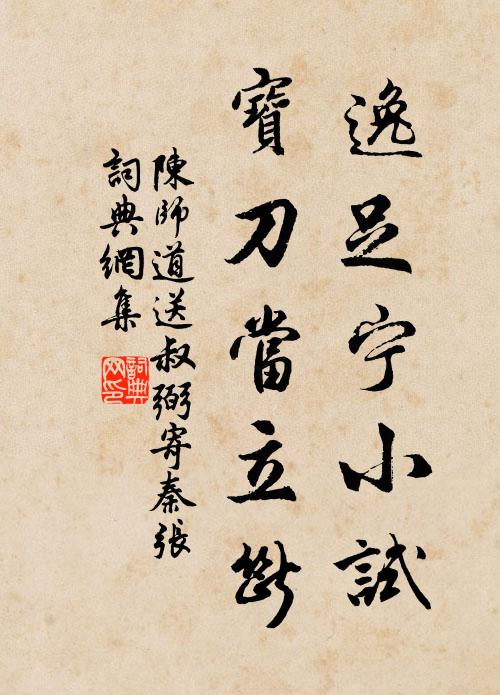 逸足宁小試
寶刀當立斷
陳師道送叔弼寄秦張
詞典網集
詞典网印